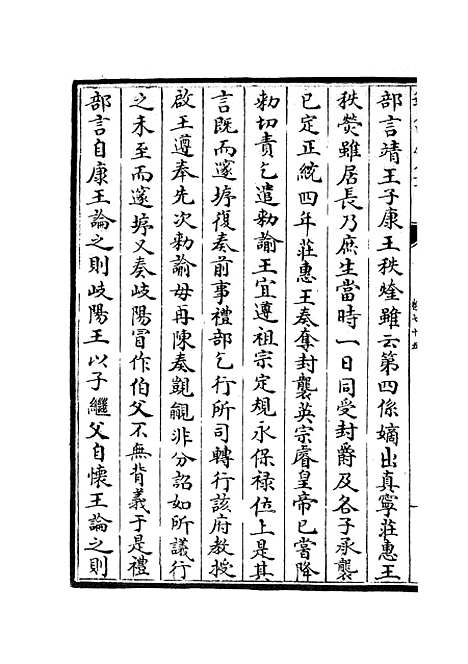 部言靖王子康王秩煃雖云第四係嫡出真寧莊惠王
秩熒雖居長乃庶生當時一日同受封爵及各子承襲
已定正統四年莊惠王奏奪封襲英宗睿皇帝已嘗降
勑切責乞遣勑諭王宜遵祖宗定規永保禄位上是其
言既而邃㙻復奏前事禮部乞行所司轉行該府教授
啟王遵奉先次勑諭毋再陳奏覬覦非分詔如所議行
之未至而邃㙻又奏岐陽冒作伯父不無背義于是禮
部言自康王論之則岐陽王以子繼父自懷王論之則
卷七十五